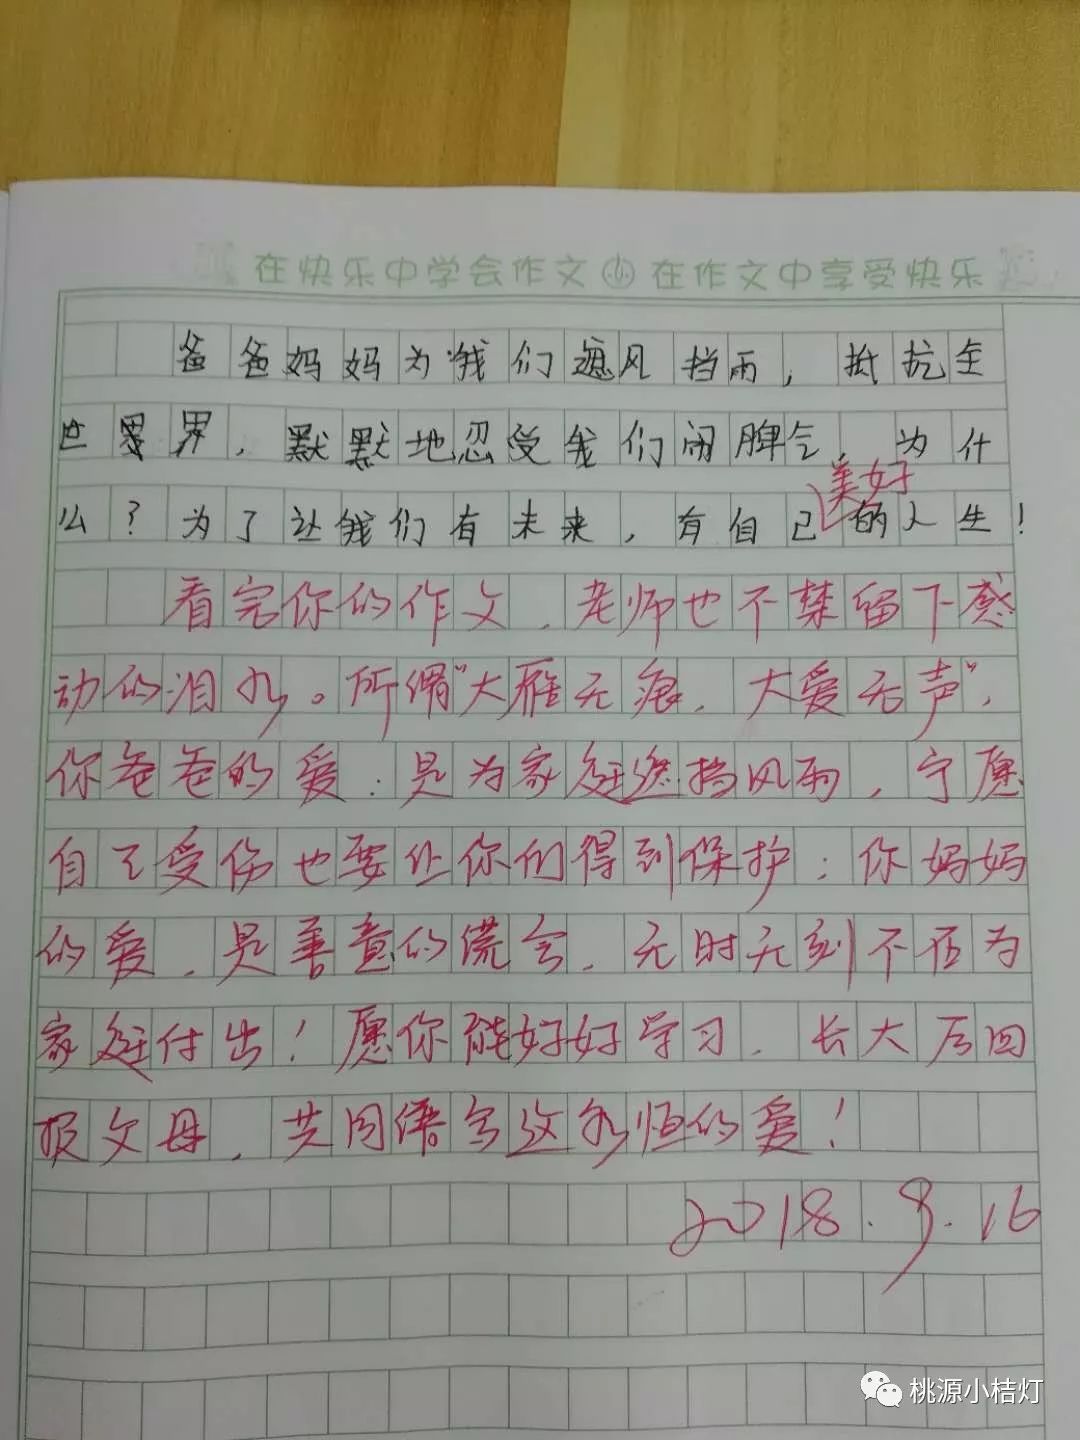 在快乐中学会作文 在作文中享受快乐
爸爸妈妈为我们遮风挡雨，抵抗全
世界，默默地忍受我们闹脾气，为什
美好
么？为了让我们有未来，有自己的人生！
看完你的作文，老师也不禁留下感
动的泪水。所谓“大雁无痕，大爱无声”，
你爸爸的爱，是为家庭遮挡风雨，宁愿
自己受伤也要让你们得到保护；你妈妈
的爱，是善意的谎言，无时无刻不在为
家庭付出！愿你能好好学习，长大后回
报父母，共同谱写这永恒的爱！
2018.9.16
桃源小桔灯